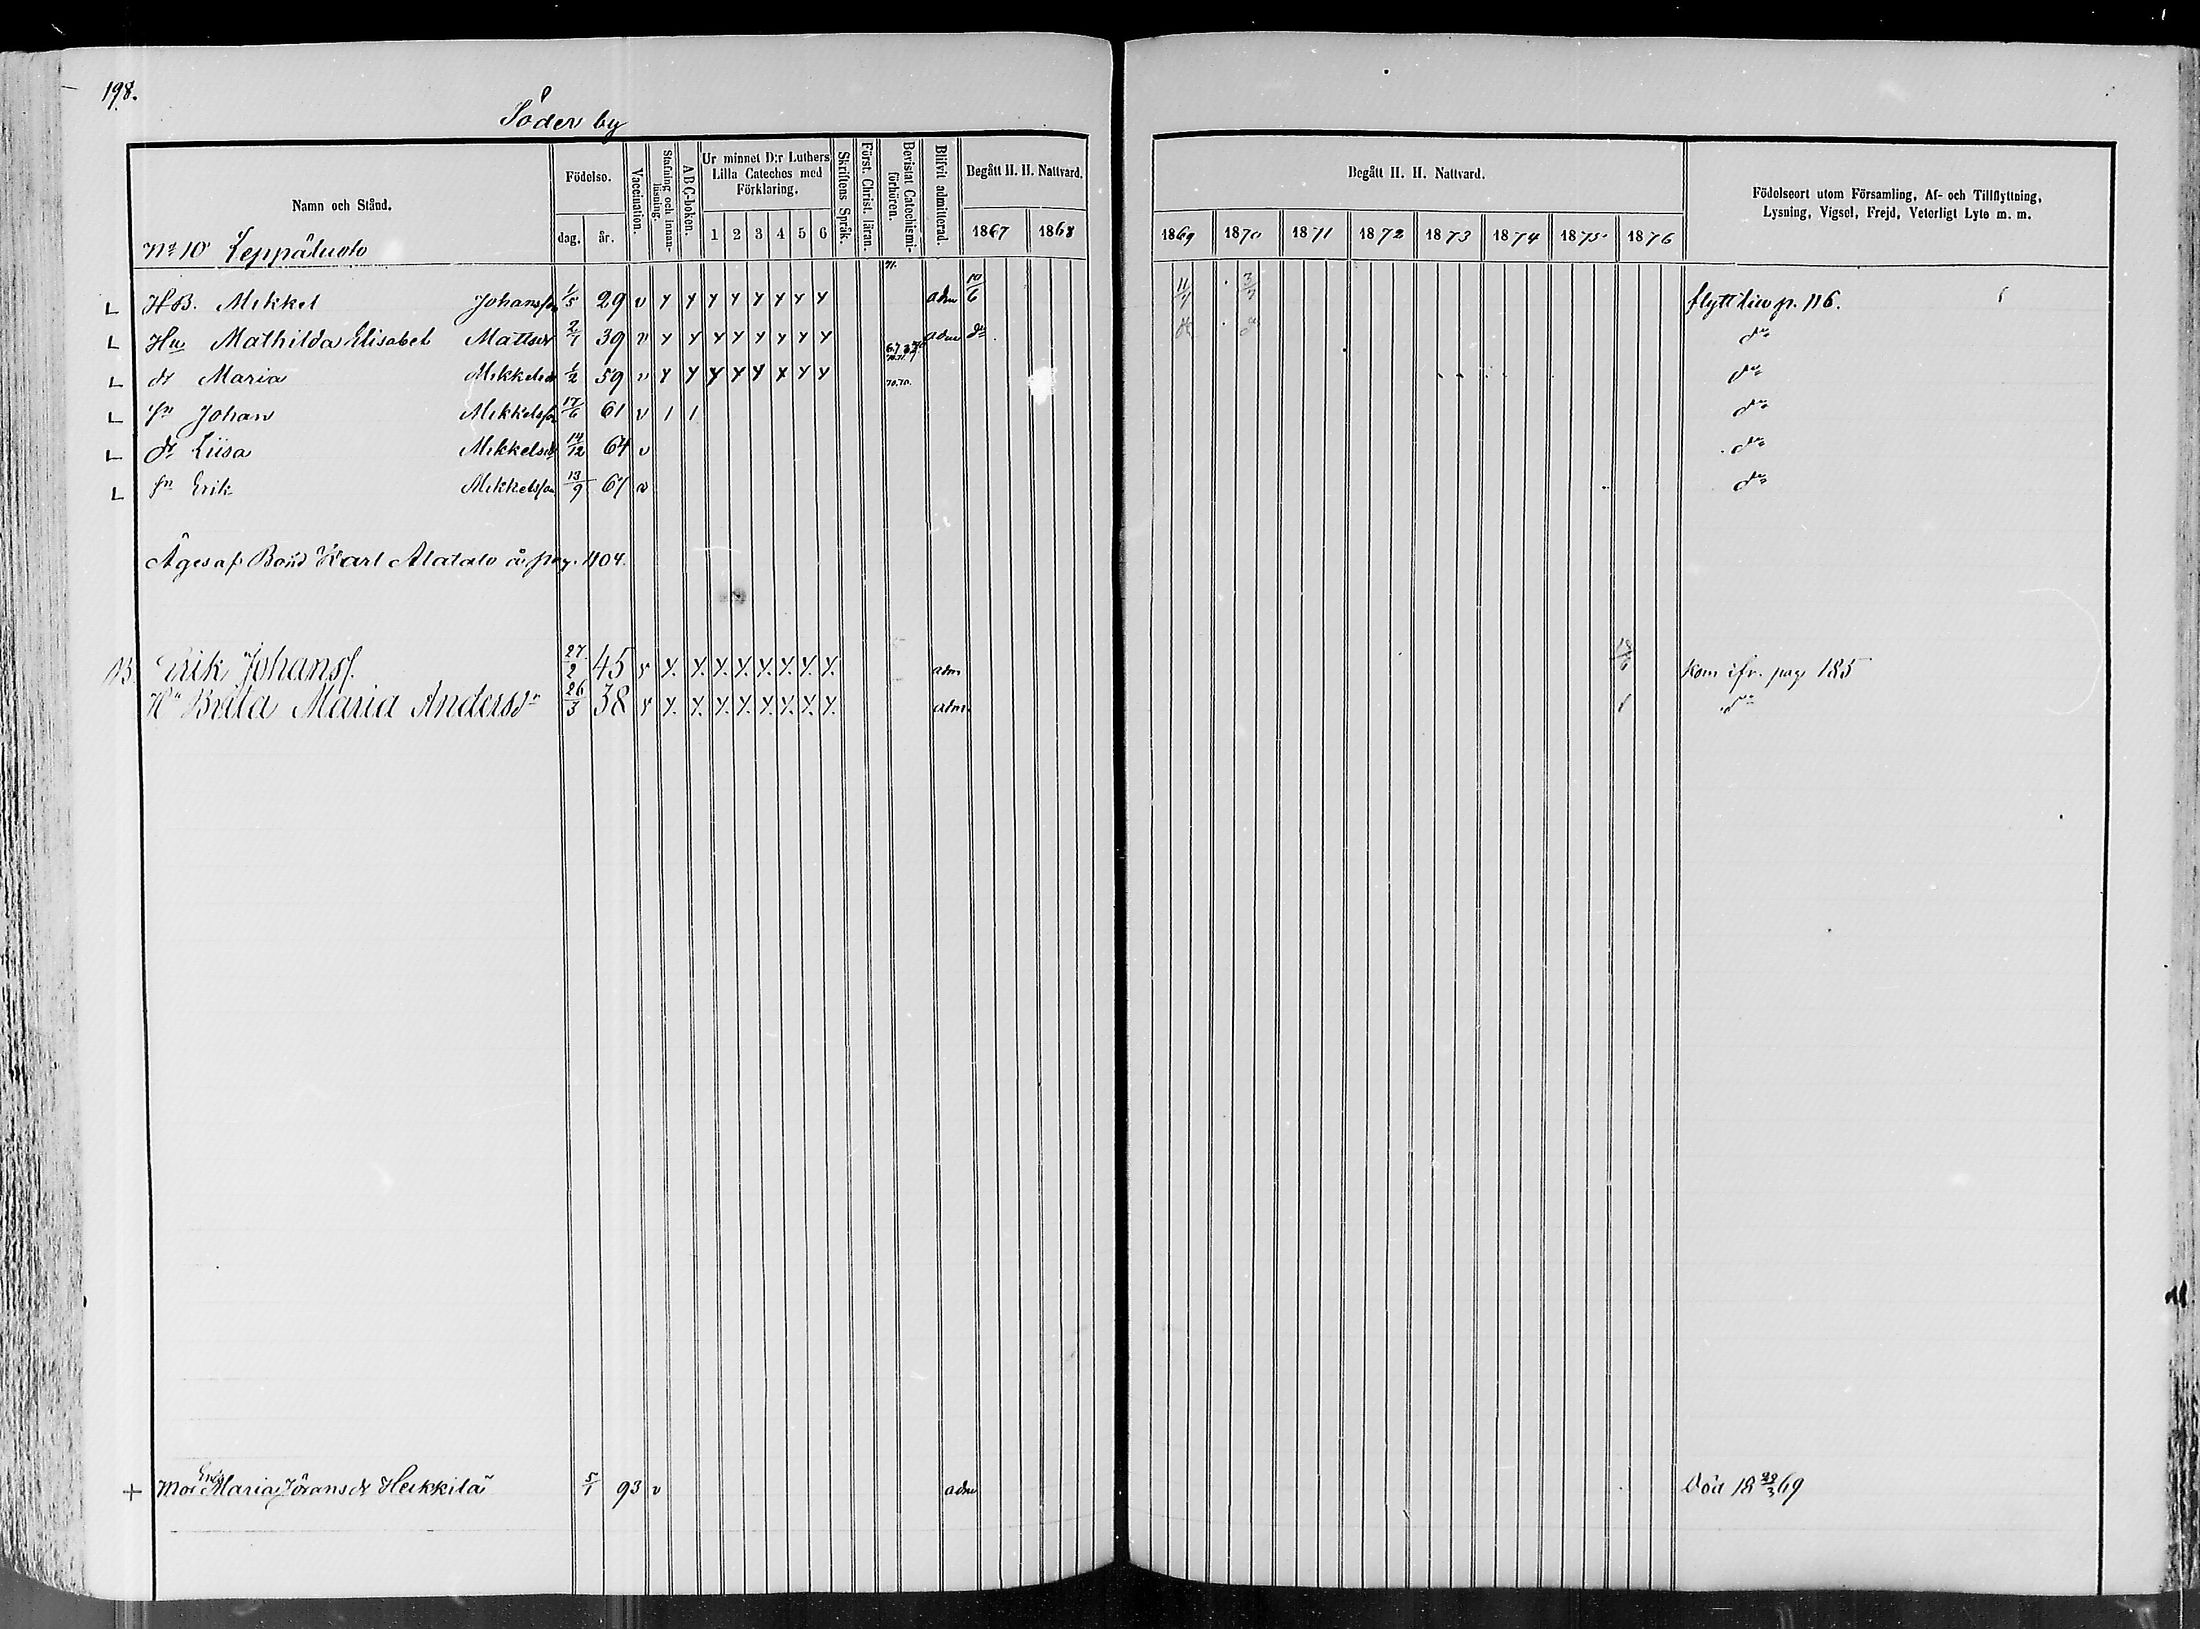 198.
Söderby
Namn och Stånd.
Födelse.
dag.
år.
Vaccination.
Stafning och Innan-läsning.
A B C-boken.
Ur minnet D:r Luthers Lilla Cateches med Förklaring.
1 2 3 4 5 6
Skriftens Språk.
Först. Christ. läran.
Bevistat Catechismi-förhören.
Blifvit admitterad.
Begått H. H. Nattvard.
1867 1868
Begått H. H. Nattvard.
1869 1870 1871 1872 1873 1874 1875 1876
Födelseort utom Församling, Af- och Tillflyttning, Lysning, Vigsel, Frejd, Veterligt Lyte m. m.
No 10 Leppäluoto
71.
L HB. Mikkel Johansson 1/5 29 v y y y y y y y y adm 10/6 11/7 3/7 flytt till p. 116.
L Hu Mathilda Elisabet Mattsdr 2/1 39 v y y y y y y y y adm do do do do
L dr Maria Mikkelsdr 1/2 59 v y y y y y y y y 70.70. do
L sn Johan Mikkelsson 17/6 61 v 1 1 do
L dr Liisa Mikkelsdr 14/12 64 v do
L sn Erik Mikkelsson 13/9 67 v do
Äges af Bond Karl Alatalo å pag. 1104.
B Erik Johanss. 27/2 45 v y. y. y. y. y. y. y. y. adm Kom ifr. pag 185
Hu Brita Maria Andersdr 26/3 38 v y. y. y. y. y. y. y. y. adm. do
+ Mor Maria Jöransdr Heikkilä 5/1 93 v adm Död 18 28/3 69